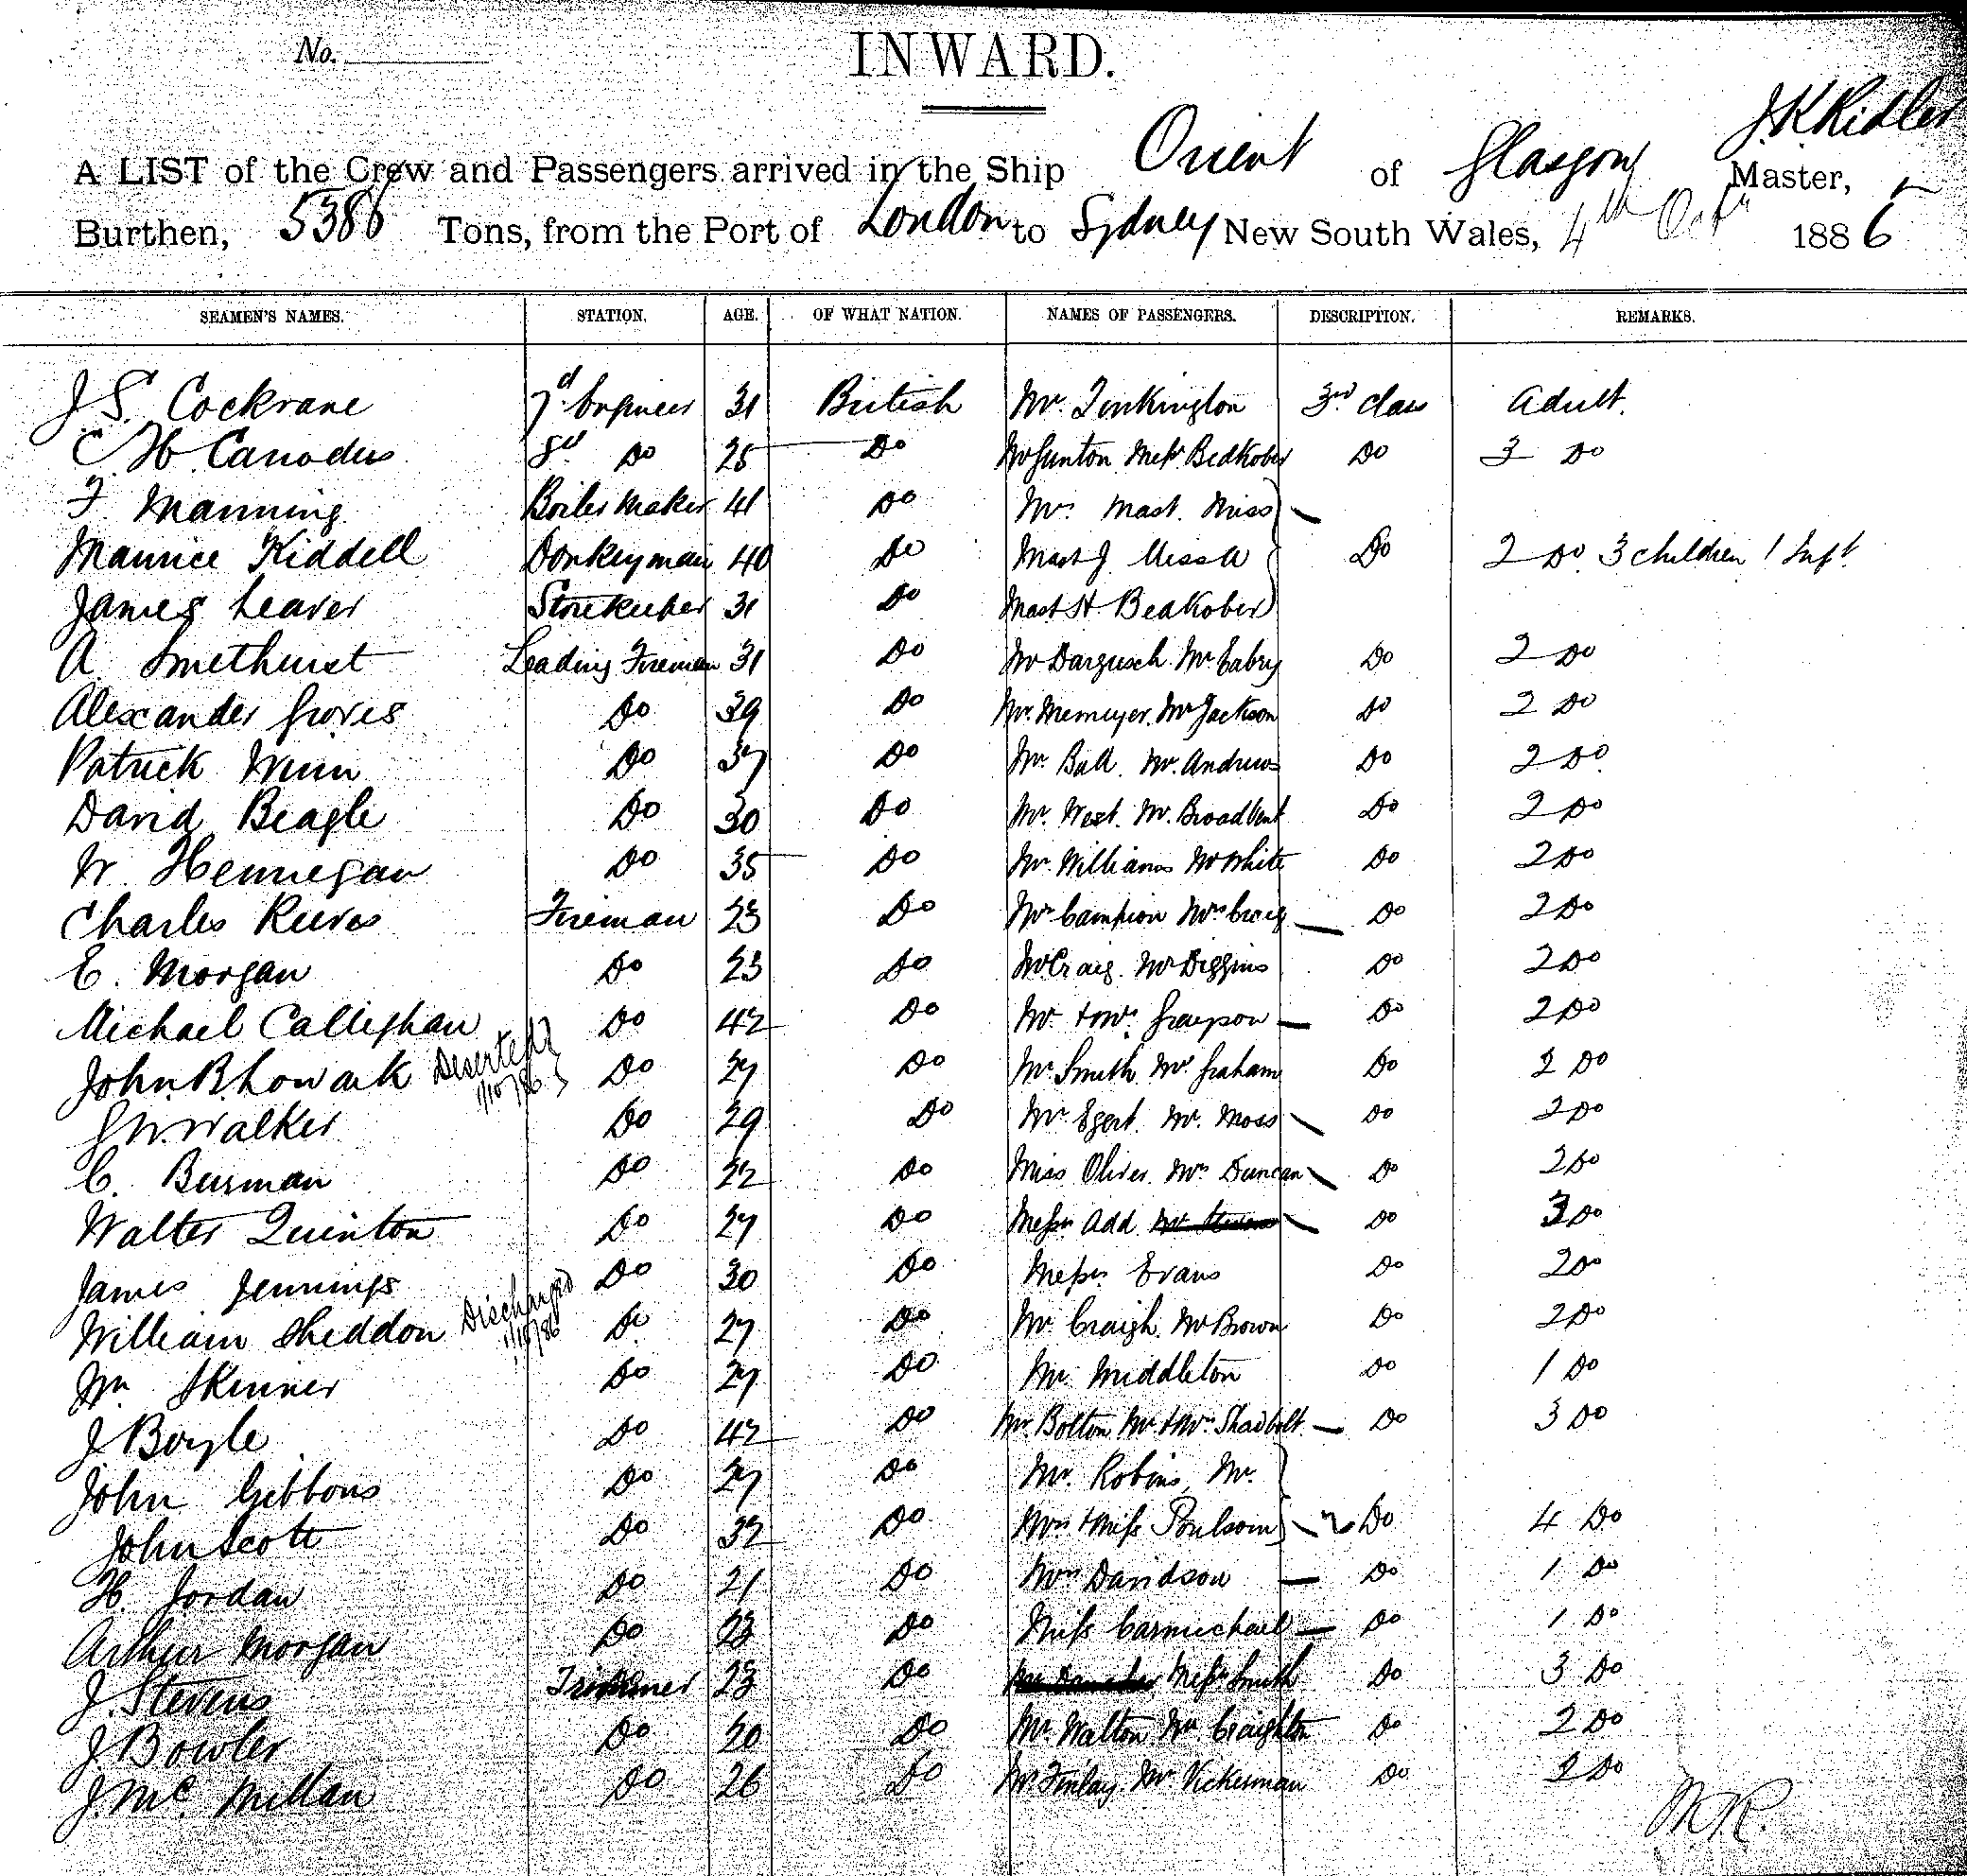 No.
INWARD.
J. K. Ridler
A LIST of the Crew and Passengers arrived in the Ship Orient of Glasgow Master,
Burthen, 5386 Tons, from the Port of London to Sydney New South Wales, 4th Octr 1886
SEAMEN'S NAMES. STATION. AGE. OF WHAT NATION. NAMES OF PASSENGERS. DESCRIPTION. REMARKS.
J. S. Cockrane 7d Engineer 31 British Mr. Tonkington 3rd class Adult.
C. H. 8d Do 25 Do Mr Gunton Messr Bedkober Do 3 Do
F. Manning Boiler Maker 41 Do Mr. Mast. Miss
Maurice Kiddell Donkeyman 40 Do Mast J Miss A Do 2 Do. 3 children 1 Inft
James Leaver Storekeeper 31 Do Mast H Bedkober
A. Smethurst Leading Fireman 31 Do Mr Dargusch Mr. Do 2 Do
Alexander Groves Do 39 Do Mr. Memeyer. Mr Jackson Do 2 Do
Patrick Winn Do 37 Do Mr. Ball. Mr. Andrews Do 2 Do
David Beagle Do 30 Do Mr. West. Mr. Broadbent Do 2 Do
W. Hennegan Do 35 Do Mr. Williams Mr White Do 2 Do
Charles Reeves Fireman 23 Do Mr Campion Mrs Craig Do 2 Do
E. Morgan Do 23 Do Mr Craig. Mr Diggins Do 2 Do
Michael Callighan Do 42 Do Mr. & Mrs. Grayson Do 2 Do
John. B. Lowark Deserted 1/10/86 Do 27 Do Mr Smith. Mr Graham Do 2 Do
G W. Walker Do 29 Do Mr Egert. Mr. Moss Do 2 Do
C. Burman Do 22 Do Miss Oliver. Mrs Duncan Do 2 Do
Walter Quinton Do 27 Do Messrs Add Do 3 Do
James Jennings Do 30 Do Messrs Evans Do 2 Do
William Sheddon Discharged 1/10/86 Do 27 Do Mr Craigh. Mr Brown Do 2 Do
Wm Skinner Do 27 Do Mr. Middleton Do 1 Do
J Boyle Do 42 Do Mr Bolton Mr & Mrs. Shadbolt Do 3 Do
John Gibbons Do 27 Do Mr. Robins, Mr.
John Scott Do 32 Do Mrs & Miss Poulsom Do 4 Do
H. Jordan Do 21 Do Mrs Davidson Do 1 Do
Arthur Morgan Do 23 Do Miss Carmichael Do 1 Do
J. Stevens Trimmer 23 Do Messrs Smith Do 3 Do
J Bowler Do 20 Do Mr. Walton Mr. Craighton Do 2 Do
J Mc Millan Do 26 Do Mr Finlay. Mr Vickerman Do 2 Do